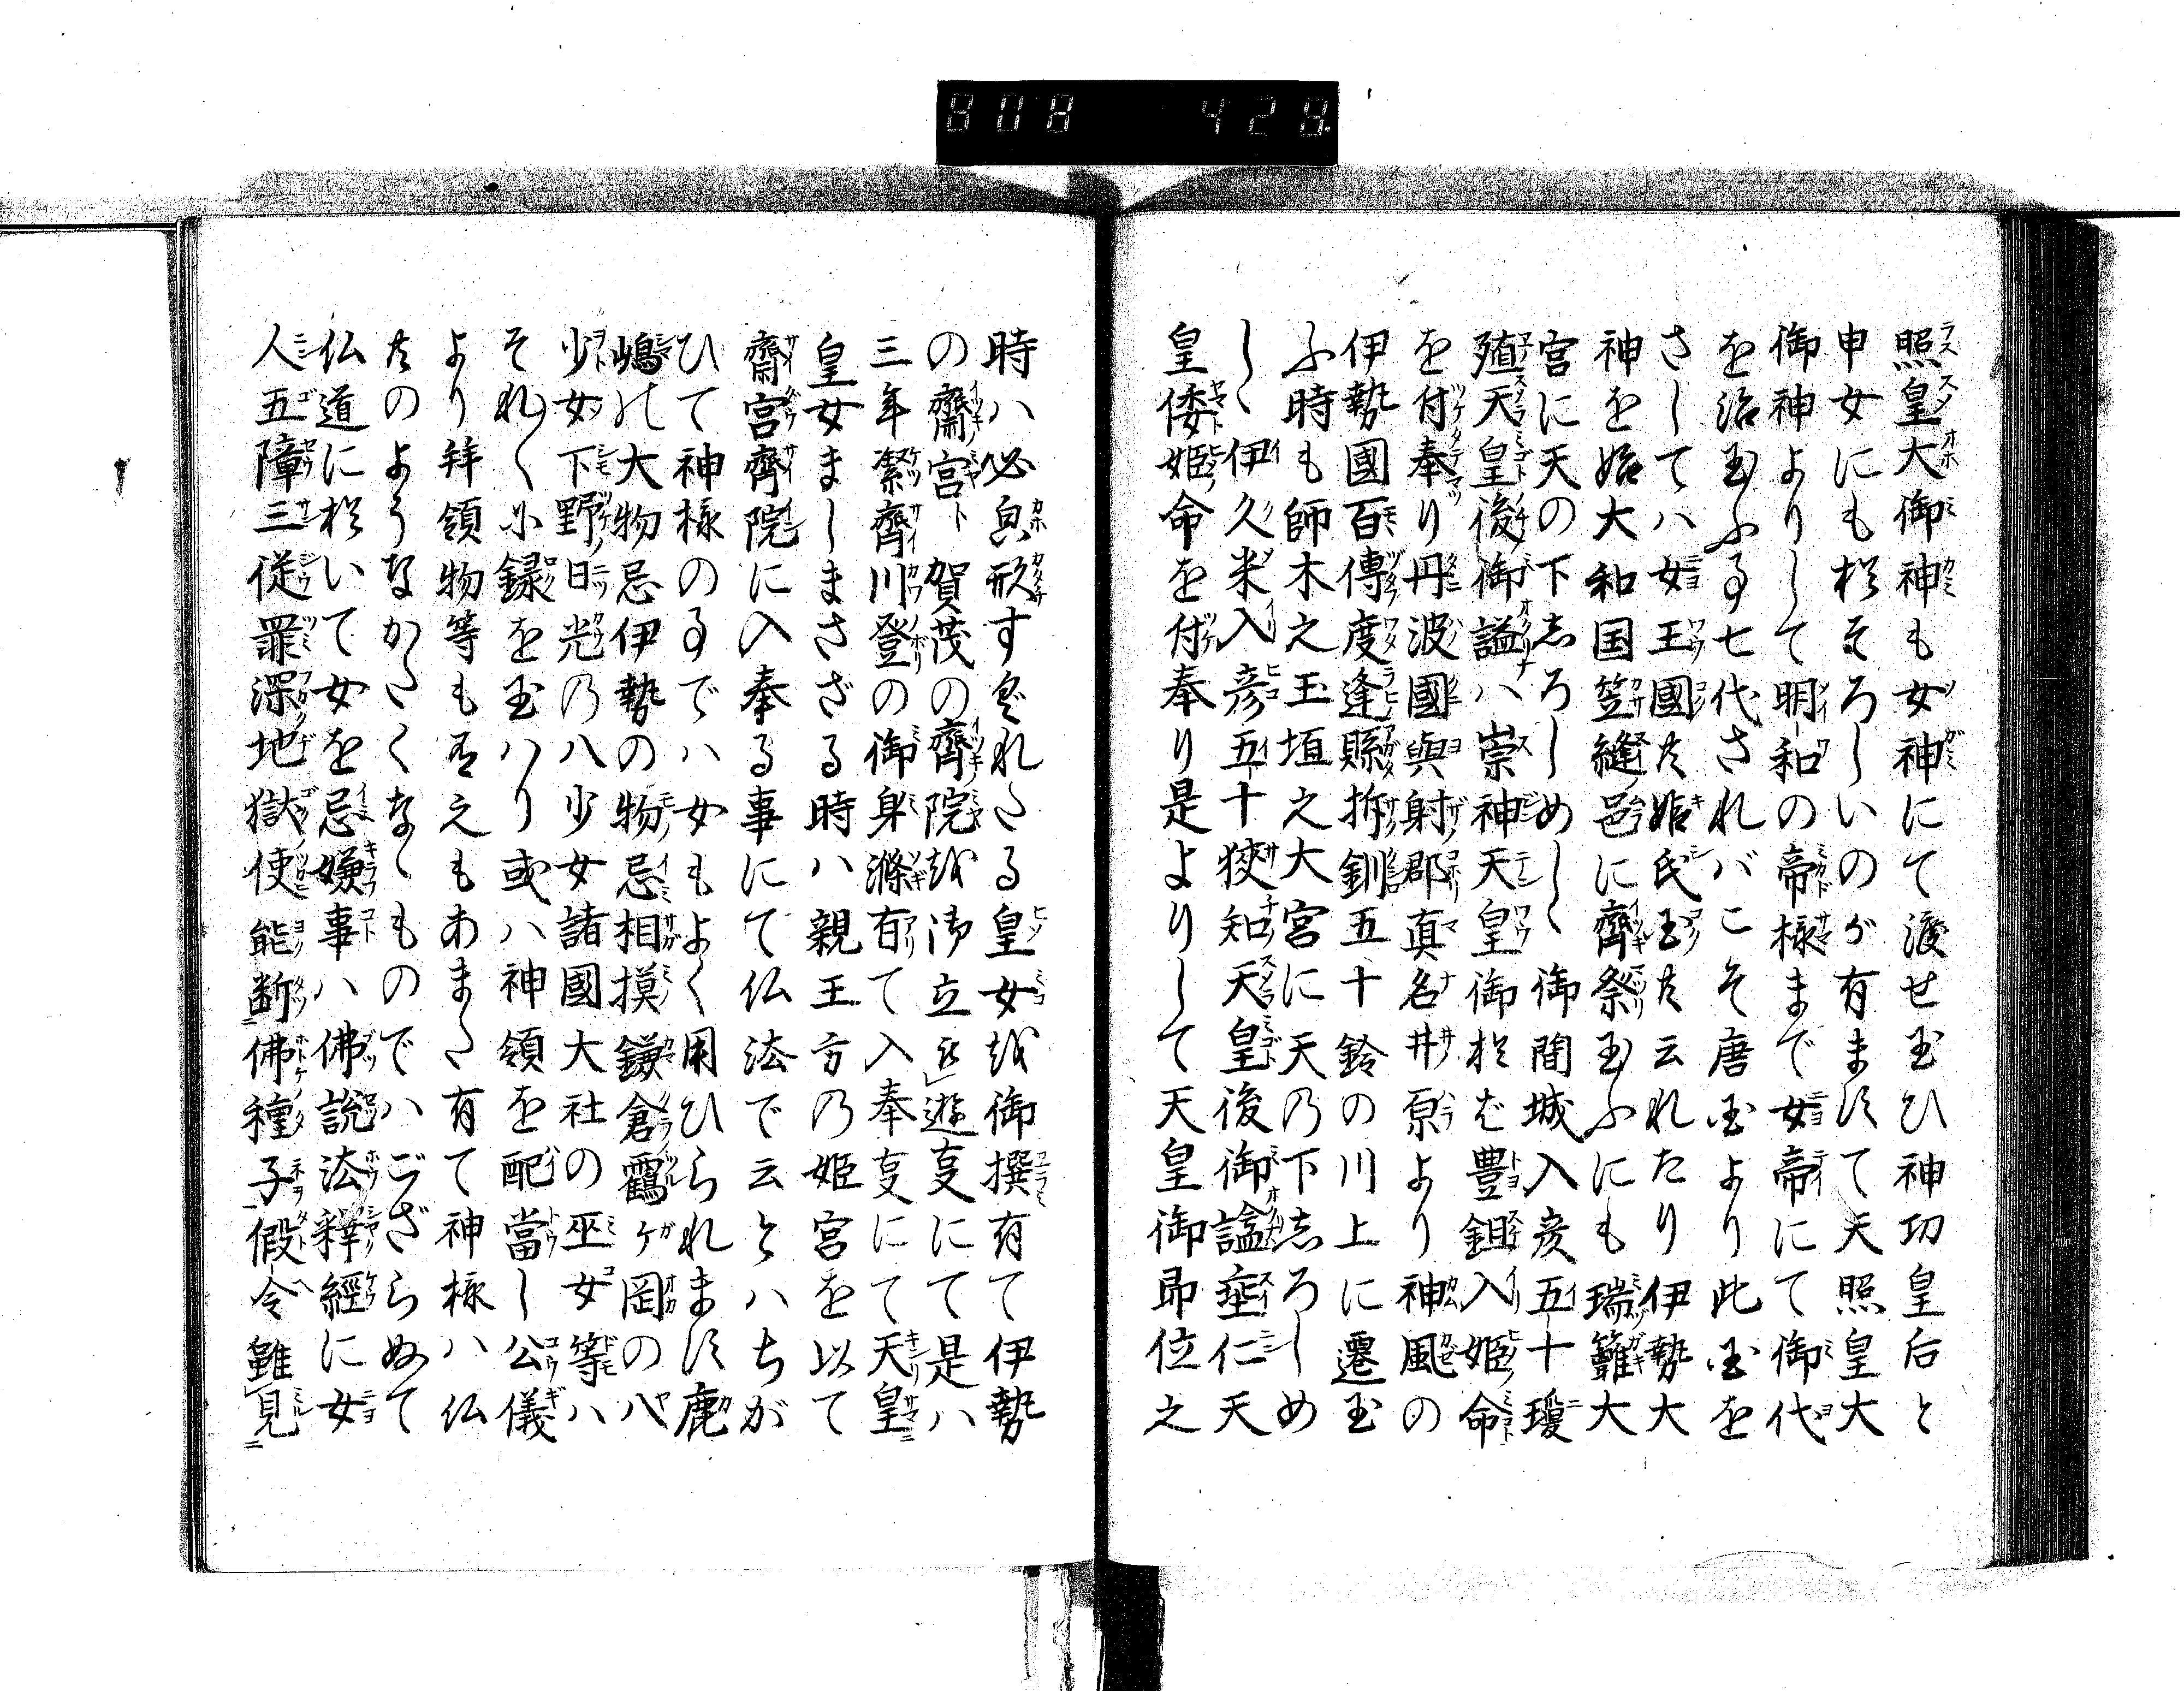 808 428
照皇大御神も女神にて渡せ玉ひ神功皇后と
申女にもおそろしいのが有まして天照皇大
御神よりして明和の帝様まで女帝にて御代
を治玉ふる七代されバこそ唐国より此国を
さしてハ女王國共姫氏国共云れたり伊勢大
神を始大和国笠縫邑に齊祭玉ふにも瑞籬大
宮に天の下志ろしめしゝ御間城入彦五十瓊
殖天皇後御諡ハ崇神天皇御於ば豊鉏入姫命
を付奉り丹波國與射郡真名井原より神風の
伊勢國百傳度逢縣拆釧五十鈴の川上に遷玉
ふ時も師木之玉垣之大宮に天乃下志ろしめ
しゝ伊久米入彦五十狹知天皇後御諡垂仁天
皇倭姫命を付奉り是よりして天皇御即位之
時ハ必皃形すぐれたる皇女越御撰有て伊勢
の齋宮賀茂の齊院越御立被遊事にて是ハ
三年潔齊川登の御身滌有て入奉事にて天皇
皇女ましまさざる時ハ親王方乃姫宮を以て
齋宮齊院に入奉る事にて仏法で云とハちが
ひて神様の事でハ女もよく用ひられます鹿
嶋の大物忌伊勢の物忌相摸鎌倉鶴ケ岡の八
少女下野日光乃八少女諸國大社の巫女等ハ
それ〱小録を玉ハり或ハ神領を配當し公儀
より拜領物等も有之もあまた有て神様ハ仏
共のようなかたくなゝものでハござらぬて
仏道に於いて女を忌嫌事ハ佛説法釋經に女
人五障三従罪深地獄使能断佛種子假令雖見